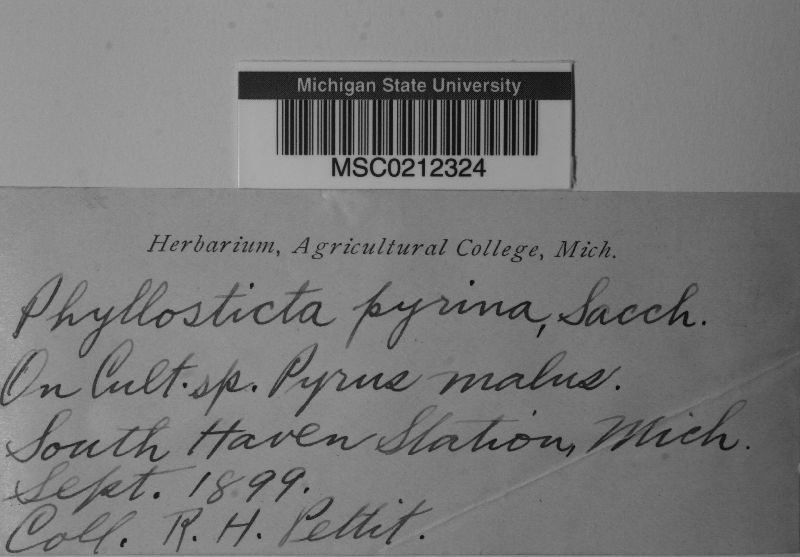 Michigan State University
MSC0212324
Herbarium, Agricultural College, Mich.
Phyllosticta pyrina, Sacch.
On Cult. sp. Pyrus malus.
South Haven Station, Mich.
Sept. 1899.
Coll. R. H. Pettit.